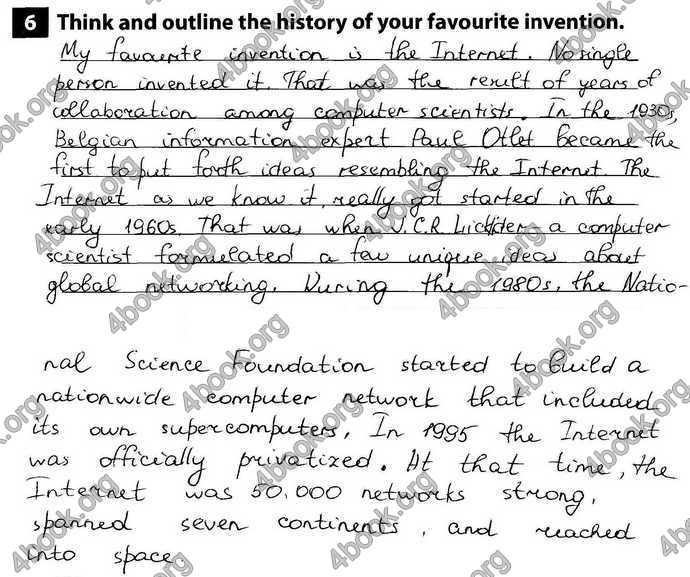 6 Think and outline the history of your favourite invention.
My favourite invention is the Internet. No single
person invented it. That was the result of years of
collaboration among computer scientists. In the 1930s,
Belgian information expert Paul Otlet became the
first to put forth ideas resembling the Internet. The
Internet as we know it, really got started in the
early 1960s. That was when J.C.R. Licklider, a computer
scientist formulated a few unique ideas about
global networking. During the 1980s, the Natio-
nal Science Foundation started to build a
nationwide computer network that included
its own supercomputers. In 1995 the Internet
was officially privatized. At that time, the
Internet was 50.000 networks strong,
spanned seven continents, and reached
into space
4book.org